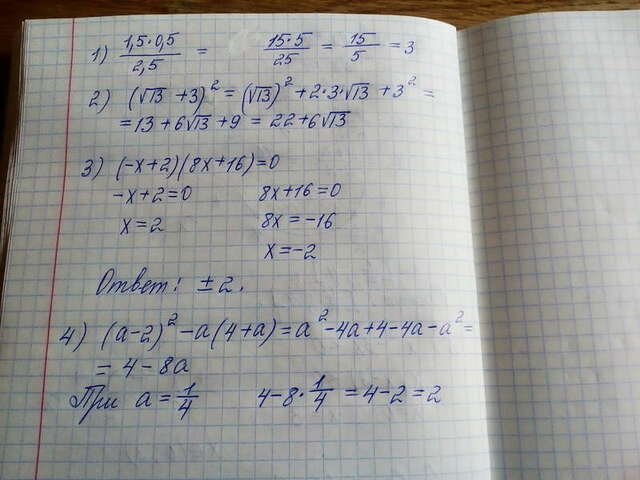 1) 1,5·0,5 / 2,5 = 15·5 / 25 = 15 / 5 = 3
2) (√13 + 3)² = (√13)² + 2·3·√13 + 3² =
= 13 + 6√13 + 9 = 22 + 6√13
3) (-x+2)(8x+16)=0
-x+2=0 8x+16=0
x=2 8x=-16
x=-2
Ответ: ±2.
4) (a-2)² - a(4+a) = a² - 4a + 4 - 4a - a² =
= 4 - 8a
При a = 1/4 4 - 8 · 1/4 = 4 - 2 = 2